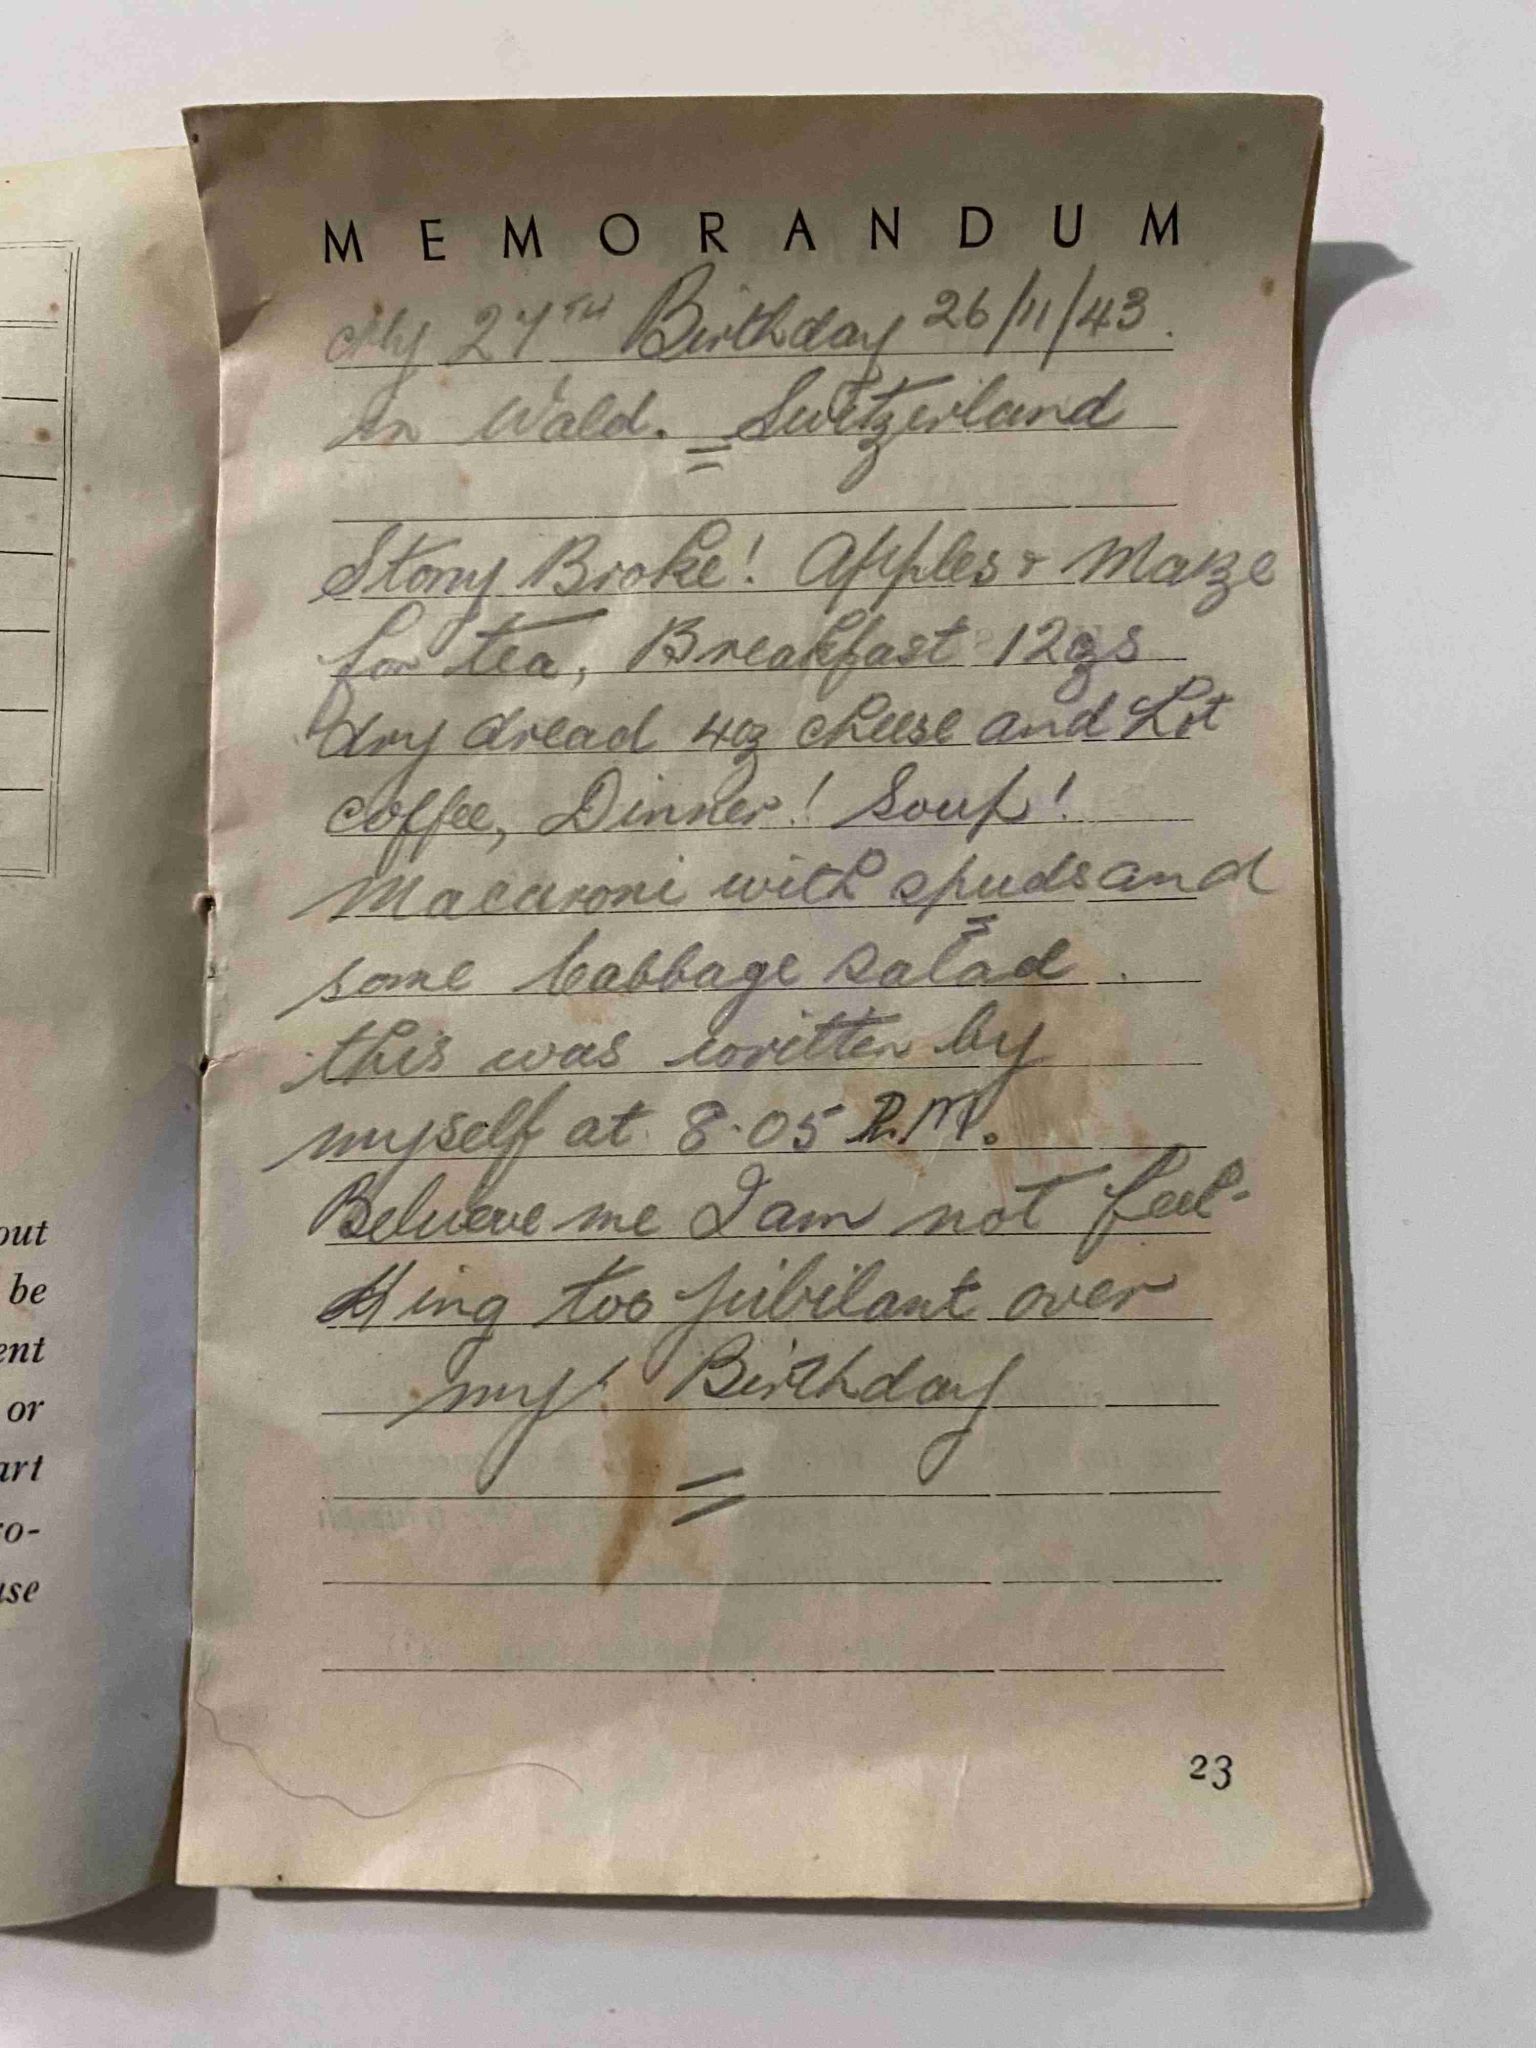 out
be
ent
or
art
ro-
use
MEMORANDUM
My 27TH Birthday 26/11/43.
In Wald. = Switzerland
Stony Broke! Apples + Maze
for tea, Breakfast 12ozs
dry bread 4oz cheese and Lot
coffee, Dinner! Soup!
Macaroni with spuds and
some Cabbage salad.
this was written by
myself at 8.05 P.M.
Believe me I am not feel-
ing too jubilant over
my Birthday
=
23